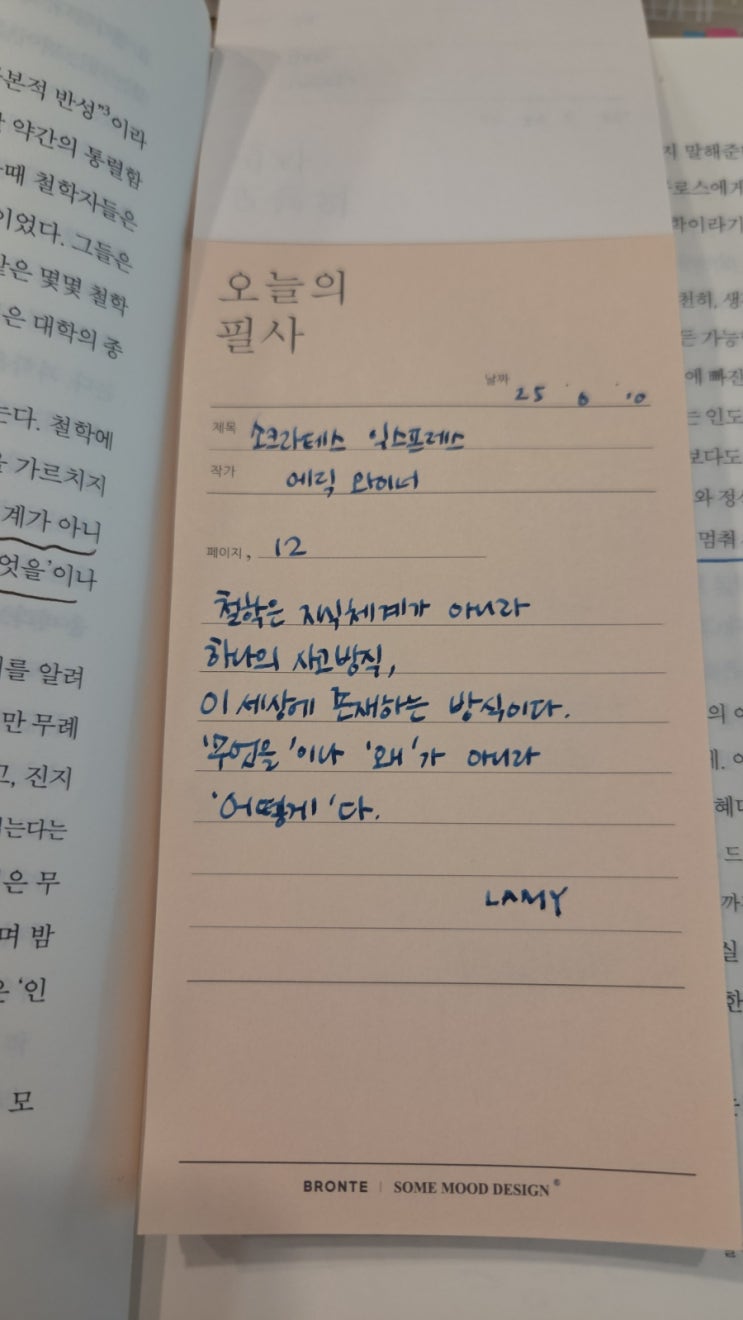 본적 반성”이라
약간의 통렬함
때 철학자들은
이었다. 그들은
같은 몇몇 철학
은 대학의 종
는다. 철학에
가르치지
계가 아니
엇을’이나
를 알려
만 무례
고, 진지
는다는
은 무
며 밤
‘인
모
오늘의
필사
날짜 25 . 6 . 10
제목 소크라테스 익스프레스
작가 에릭 와이너
페이지, 12
철학은 지식체계가 아니라
하나의 사고방식,
이 세상에 존재하는 방식이다.
'무엇을'이나 '왜'가 아니라
'어떻게'다.
LAMY
BRONTE | SOME MOOD DESIGN
지 말해준
로스에게
학이라기
천히, 생
든 가능
에 빠진
는 인도
보다도
와 정
멈춰
의
혜
드
까
실
한